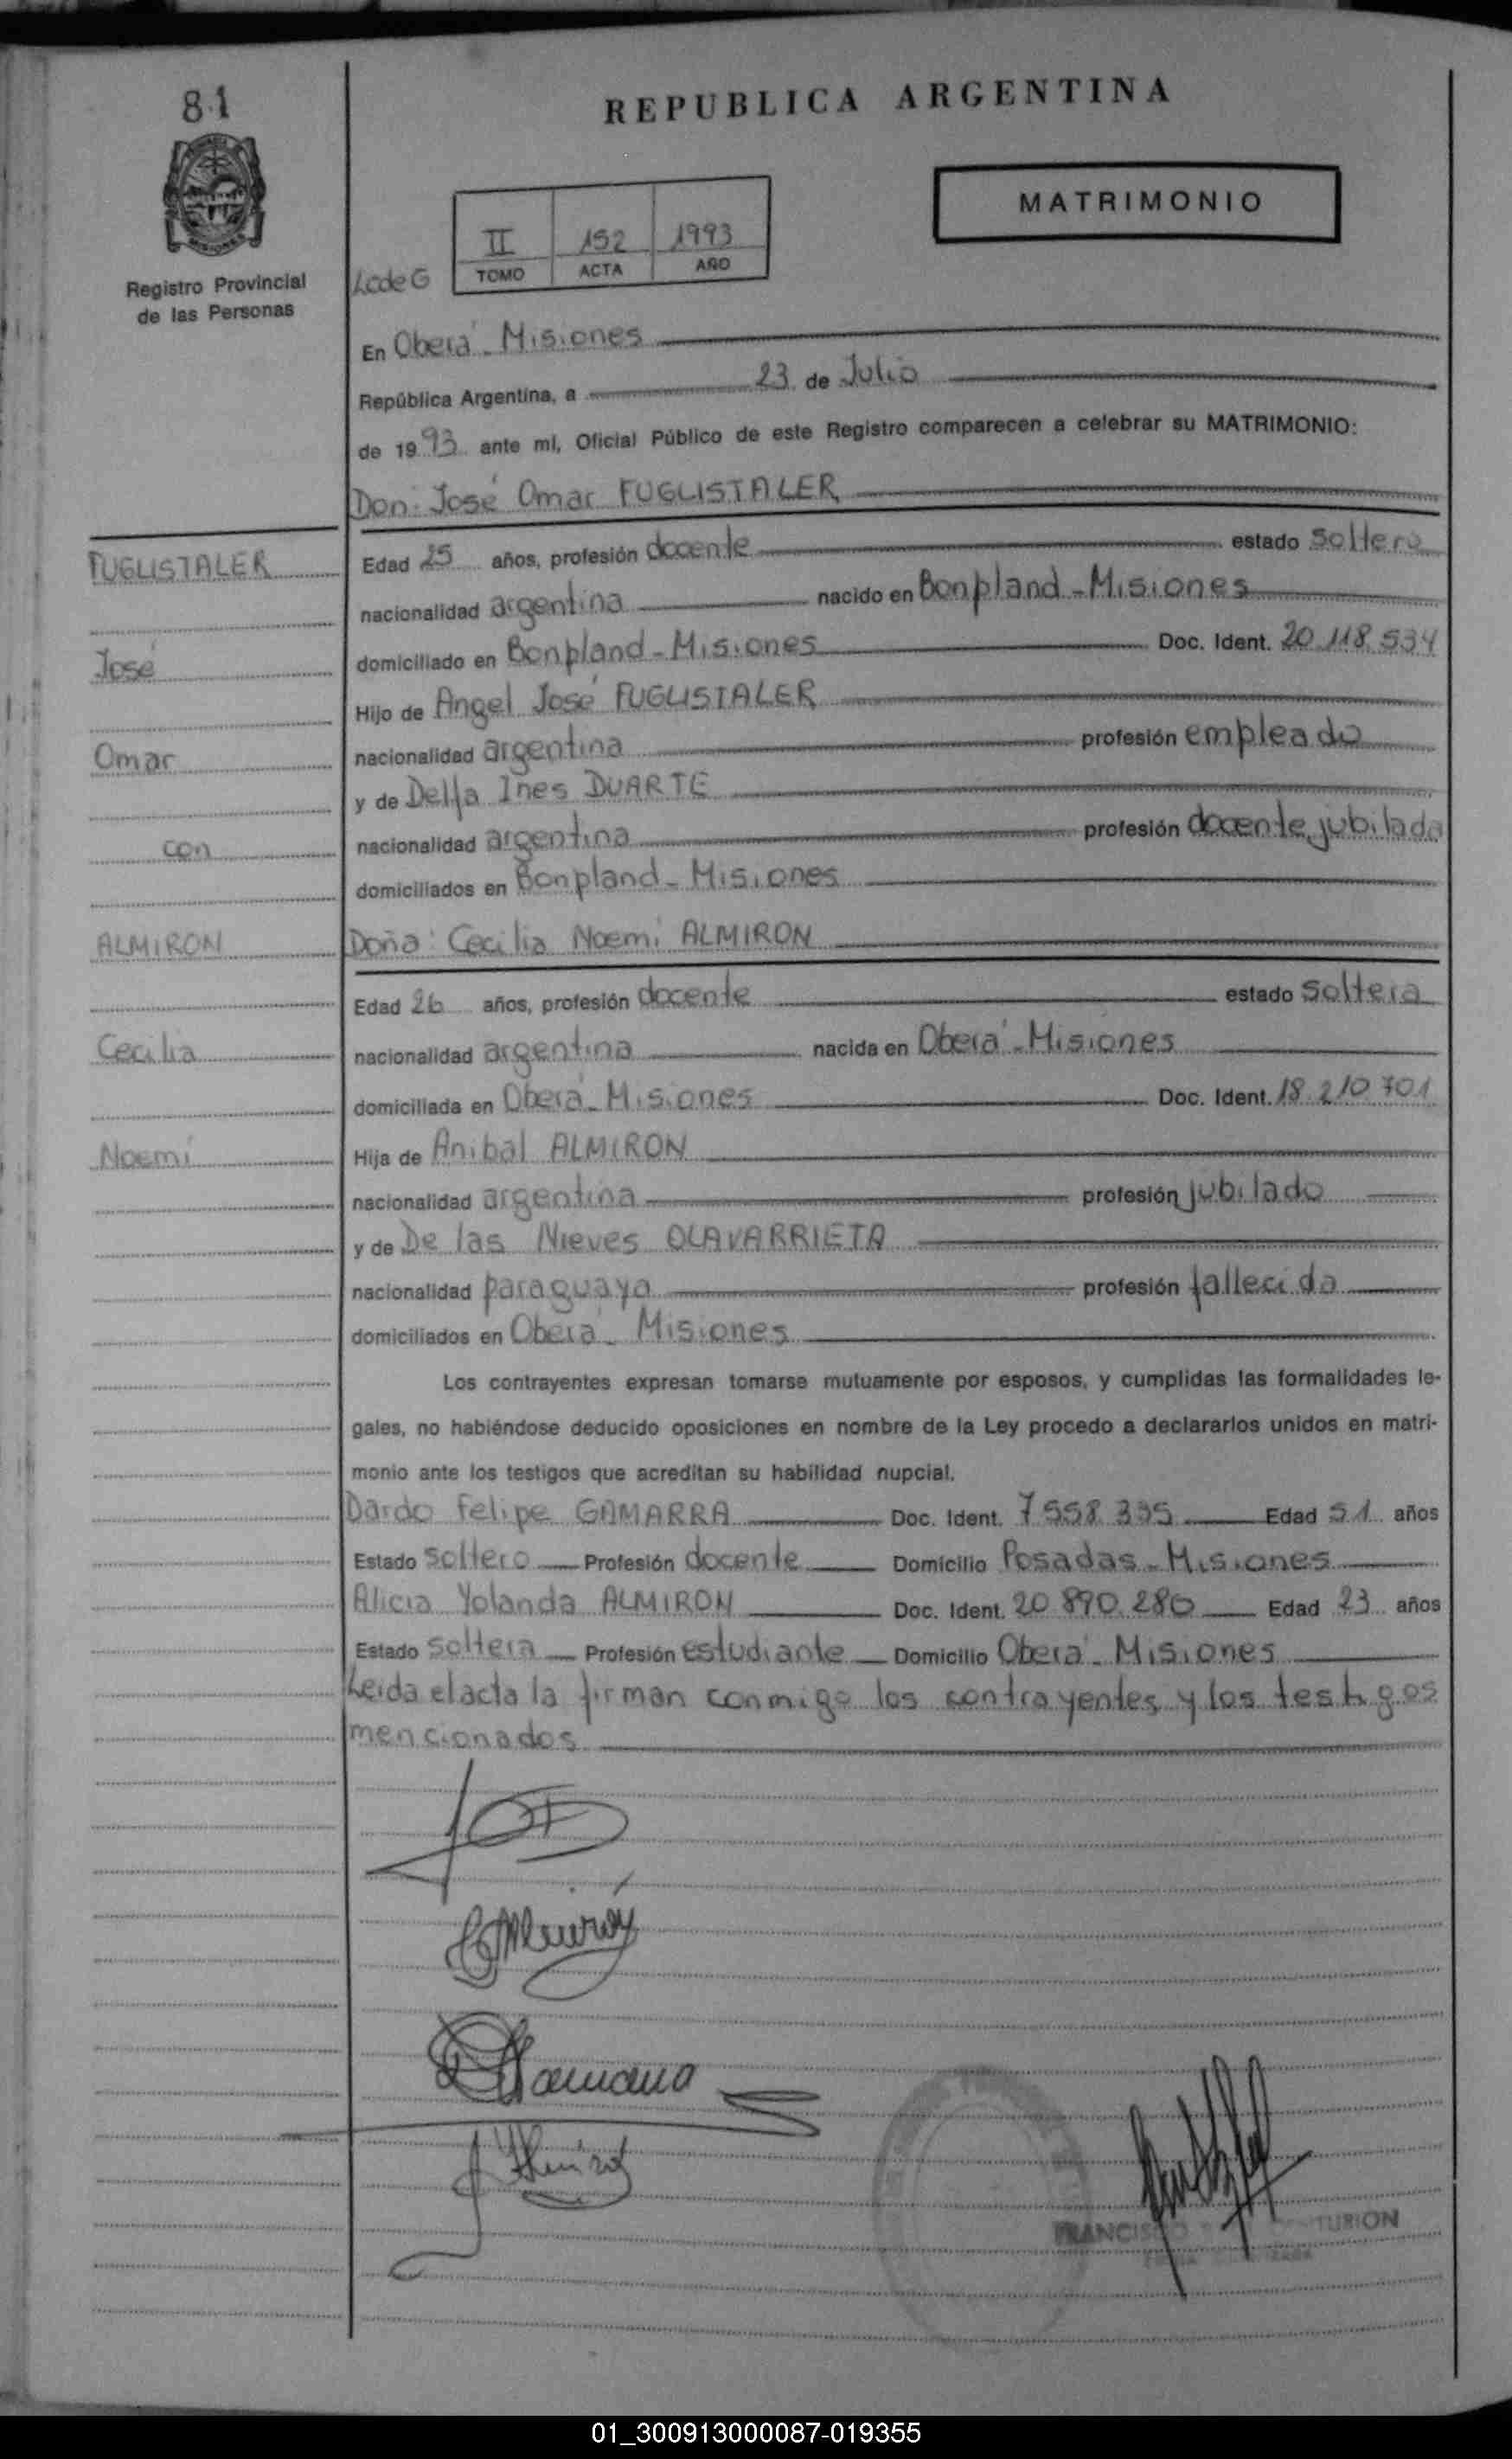 81
REPUBLICA ARGENTINA
MATRIMONIO
II 152 1993
TOMO ACTA AÑO
Registro Provincial
de las Personas
LcdeG
En Oberá - Misiones
República Argentina, a 23 de Julio
de 1993 ante mí, Oficial Público de este Registro comparecen a celebrar su MATRIMONIO:
Don: José Omar FUGLISTALER
FUGLISTALER
Edad 25 años, profesión docente estado Soltero
nacionalidad argentina nacido en Bonpland - Misiones
José
domiciliado en Bonpland - Misiones Doc. Ident. 20.118.534
Hijo de Angel José FUGLISTALER
Omar
nacionalidad argentina profesión empleado
y de Delfa Ines DUARTE
con
nacionalidad argentina profesión docente jubilada
domiciliados en Bonpland - Misiones
ALMIRON
Doña: Cecilia Noemí ALMIRON
Edad 26 años, profesión docente estado Soltera
Cecilia
nacionalidad argentina nacida en Oberá - Misiones
domiciliada en Oberá - Misiones Doc. Ident. 18.210.701
Noemí
Hija de Anibal ALMIRON
nacionalidad argentina profesión jubilado
y de De las Nieves OLAVARRIETA
nacionalidad paraguaya profesión fallecida
domiciliados en Oberá - Misiones
Los contrayentes expresan tomarse mutuamente por esposos, y cumplidas las formalidades le-
gales, no habiéndose deducido oposiciones en nombre de la Ley procedo a declararlos unidos en matri-
monio ante los testigos que acreditan su habilidad nupcial.
Dardo Felipe GAMARRA Doc. Ident. 7.558.395 Edad 51 años
Estado Soltero Profesión docente Domicilio Posadas - Misiones
Alicia Yolanda ALMIRON Doc. Ident. 20.890.280 Edad 23 años
Estado Soltera Profesión estudiante Domicilio Oberá - Misiones
Leida el acta la firman conmigo los contrayentes y los testigos
mencionados
01_300913000087-019355